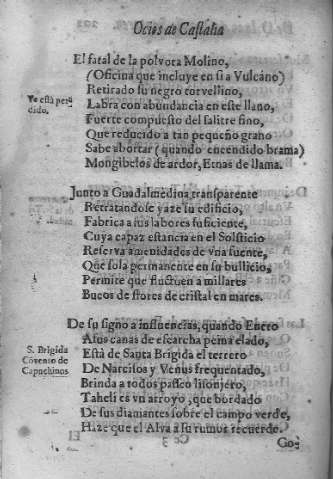 Ocios de Castalia
El fatal de la polvora Molino,
(Oficina que incluye en si a Vulcano)
Retirado su negro torvellino,
Yo està per
dido.
Labra con abundancia en este llano,
Fuerte compuesto del salitre fino,
Que reducido a tan pequeño grano
Sabe abortar (quando encendido brama)
Mongibelos de ardor, Etnas de llama.
Junto a Guadalmedina transparente
Retratandose yaze su edificio,
Fabrica a sus labores suficiente,
Cuya capaz estancia en el Solsticio
Reserva amenidades de vna fuente,
Que sola permanente en su bullicio,
Permite que fluctuen a millares
Bucos de flores de cristal en mares.
De su signo a influencias, quando Enero
A sus canas de escarcha peina elado,
S. Brigida
Côvento de
Capuchinos
Està de Santa Brigida el terrero
De Narcisos y Venus frequentado,
Brinda a todos passeo lisonjero,
Taheli es vn arroyo, que bordado
De sus diamantes sobre el campo verde,
Haze que el Alva a su rumor recuerde.
Cc 3
Go-